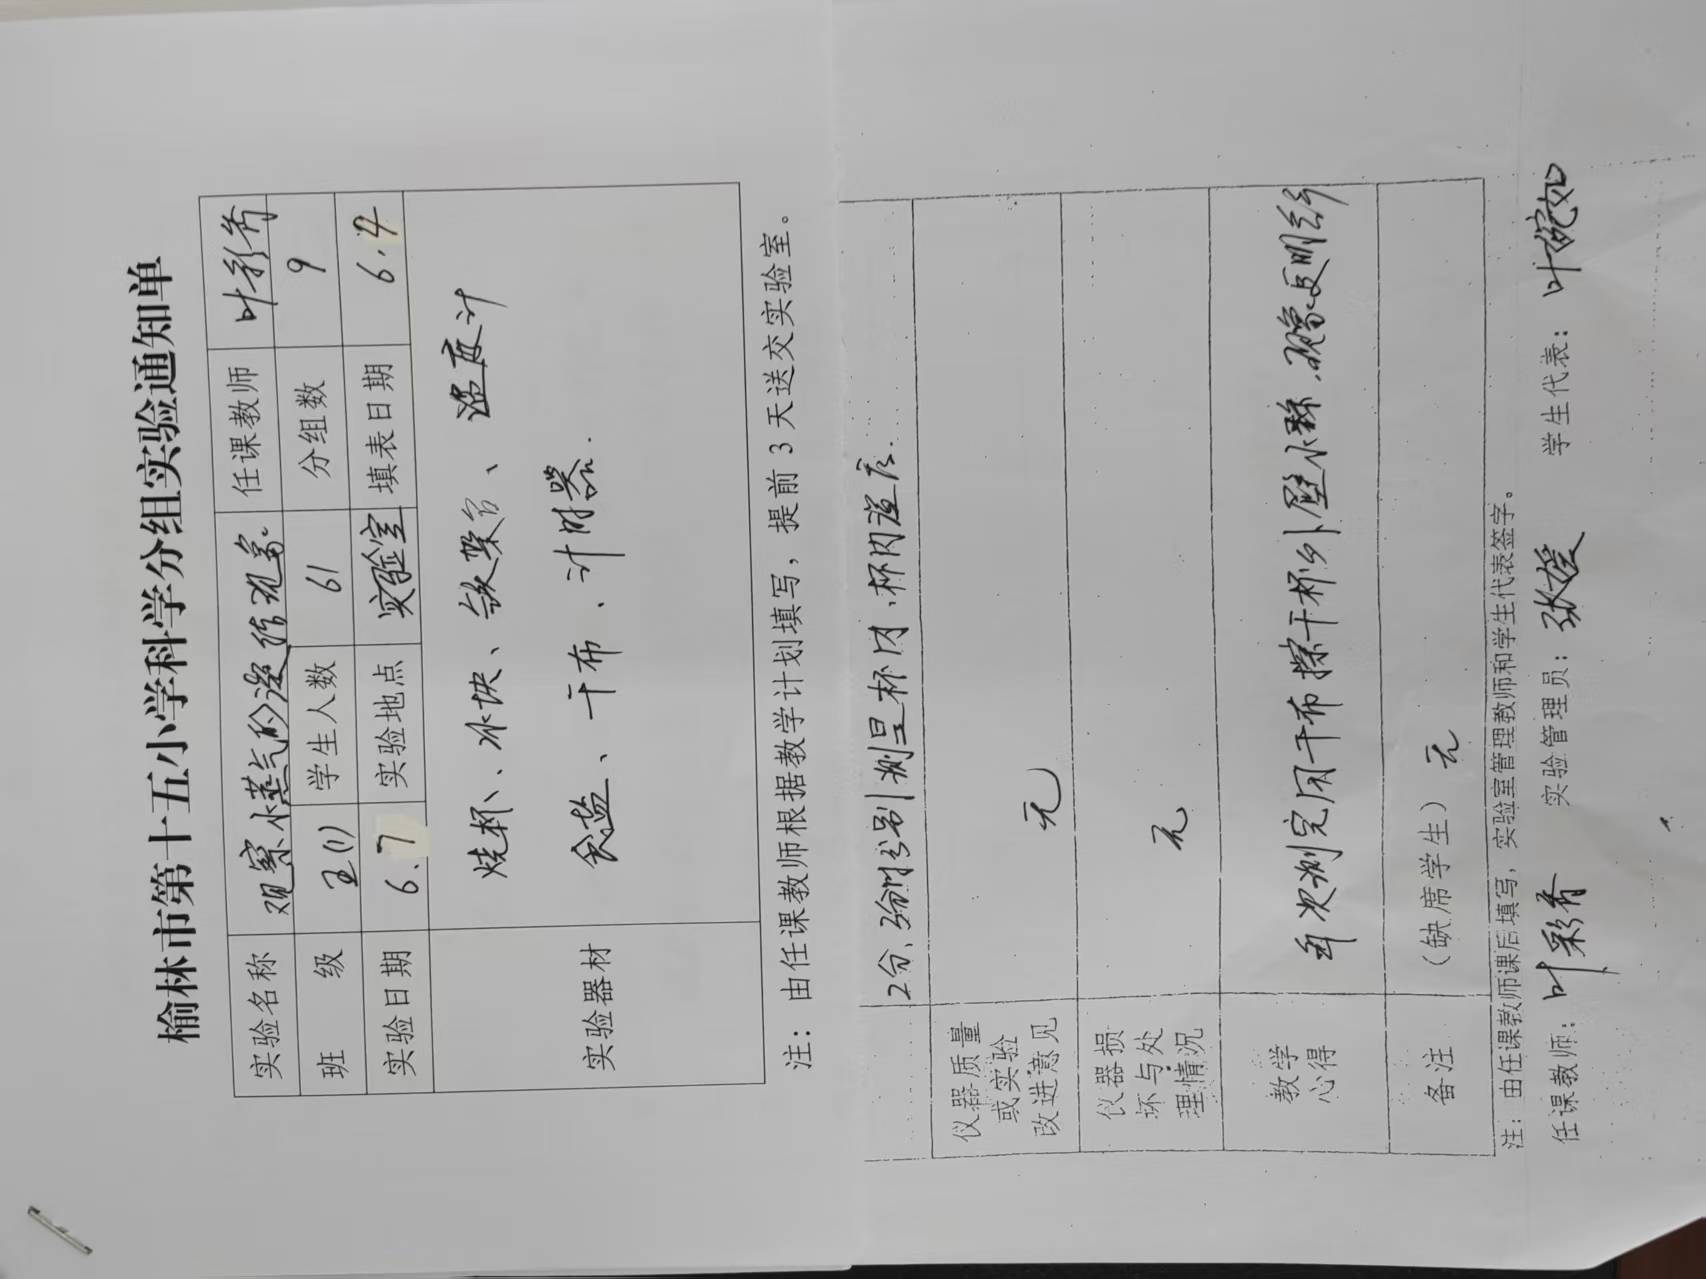 榆林市第十五小学科学分组实验通知单
实验名称 观察水蒸气的凝结现象 任课教师 叶彩香
班 级 五(1) 学生人数 61 分组数 9
实验日期 6.7 实验地点 实验室 填表日期 6.4
实验器材 烧杯、冰块、铁架台、温度计
食盐、干布、计时器.
注：由任课教师根据教学计划填写，提前3天送交实验室。
2分、5分时分别测量杯内、杯内温度.
仪器质量或实验改进意见 无
仪器损坏与处理情况 无
教学心得 每次测完用干布擦干杯外壁水珠,现象更明显
备注 （缺席学生） 无
注：由任课教师课后填写，实验室管理教师和学生代表签字。
任课教师：叶彩香 实验管理员：张媛 学生代表：叶婉如